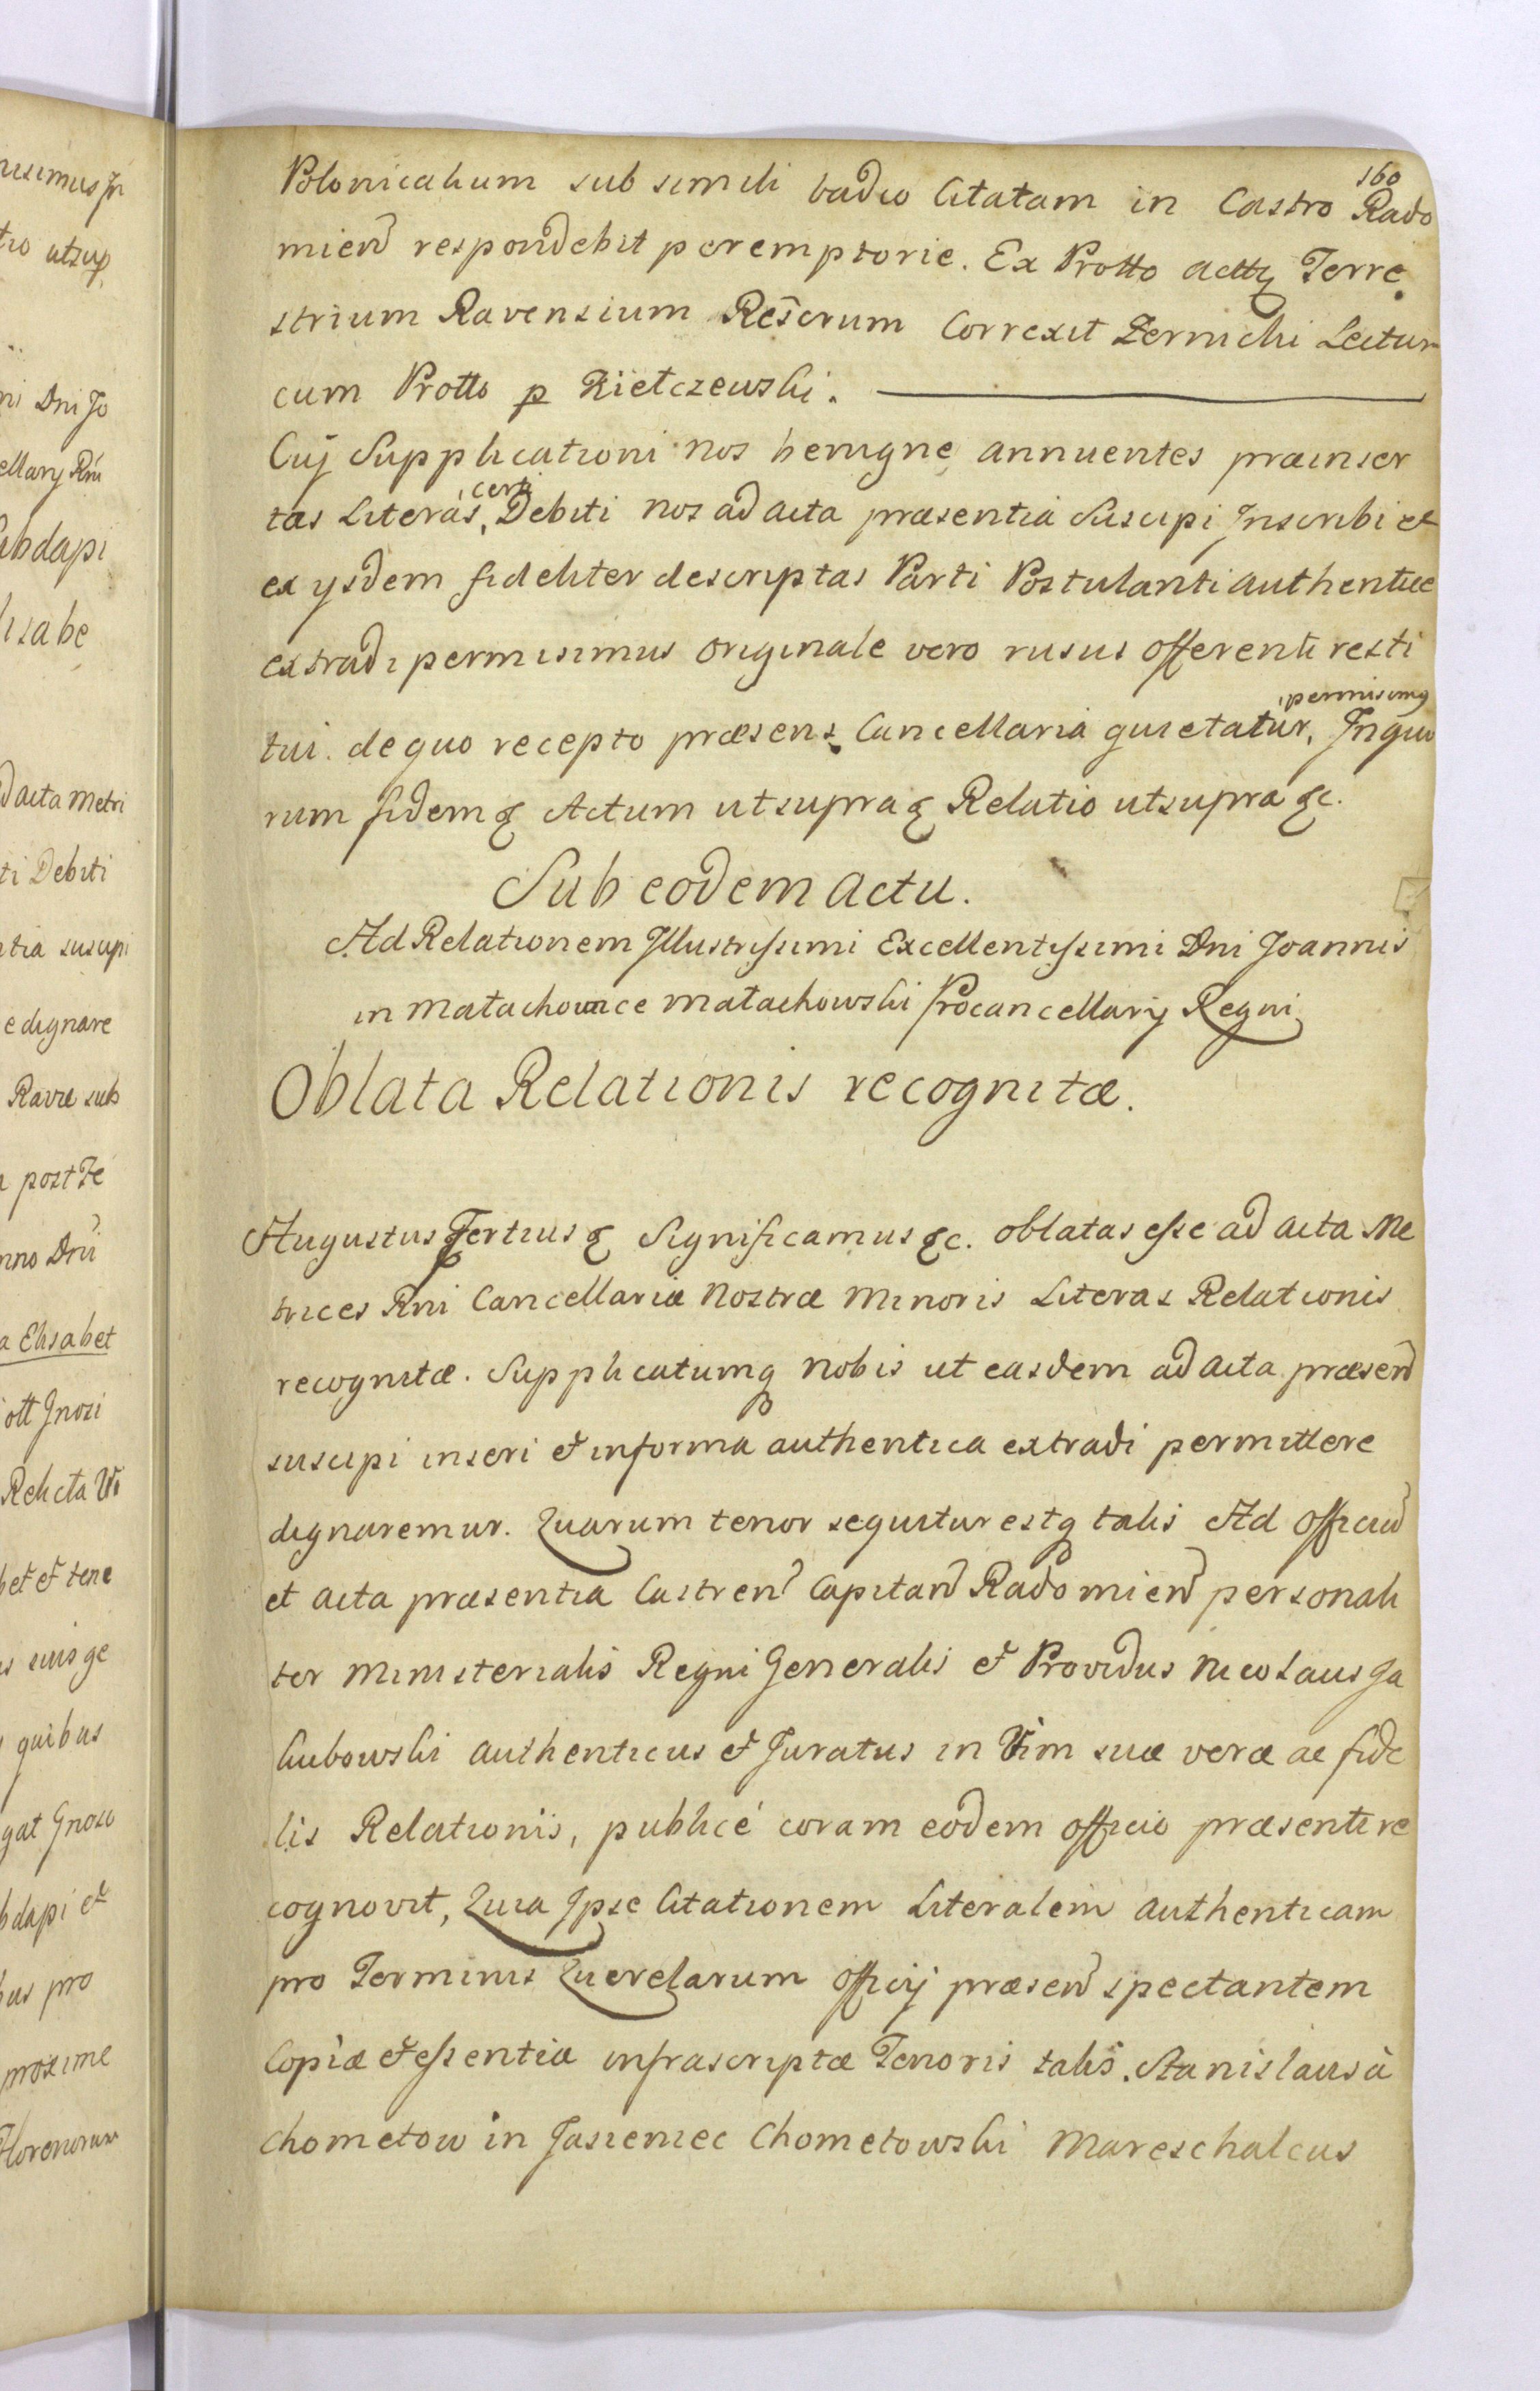 160
Polonicalium sub simili vadio Citatam in Castro Rado
mień respondebit peremptorie. Ex Protto actq Terre
strium Ravensium Rescrum Correxit Zernicki Lectum
cum Protto p Kietczewski.
Cuj Supplicationi nos benigne annuentes præinser
tas Literas, certi Debiti nos ad acta præsentia Suscipi Inscribi et
ex ysdem fideliter descriptas Parti Postulanti authentice
extradi permisimus originale vero rusus offerenti resti
tui. de quo recepto præsens Cancellaria quietatur, permisimq Inquo
rum fidem & Actum ut supra & Relatio ut supra &c.
Sub eodem actu.
Ad Relationem Illustrissimi Excellentissimi Dni Joannis
in Matachowice Matachowski Procancellarij Regni
Oblata Relationis recognitæ.
Augustus Tertius & Significamus &c. oblatas esse ad acta Me
trices Rni Cancellariæ Nostræ Minoris Literas Relationis
recognitæ. Supplicatumq nobis ut easdem ad acta præsen
suscipi inseri et in forma authentica extradi permittere
dignaremur. Quarum tenor sequitur estq talis Ad officiu
et acta præsentia Castren Capitan Radomien personali
ter Ministerialis Regni Generalis et Providus Nicolaus Ja
kubowski authenticus et Juratus in Vim suæ veræ ac fide
lis Relationis, publicé coram eodem officio præsenti re
cognovit, Quia Ipse Citationem Literalem authenticam
pro Terminis Querelarum officij præsen spectantem
Copiæ et essentiæ infrascriptæ Tenoris talis. Stanislaus à
Chometow in Jasieniec Chometowski Mareschalcus